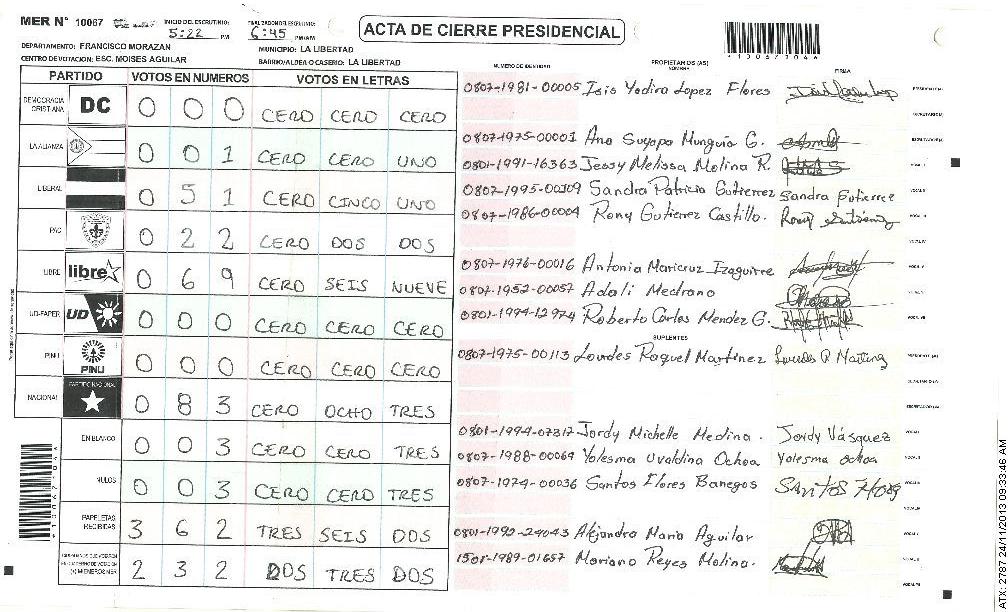 MER N° 10067
INICIO DEL ESCRUTINIO:
5:22 PM
FINALIZACION DEL ESCRUTINIO:
6:45 PM/AM
ACTA DE CIERRE PRESIDENCIAL
DEPARTAMENTO: FRANCISCO MORAZAN
MUNICIPIO: LA LIBERTAD
CENTRO DE VOTACION: ESC. MOISES AGUILAR
BARRIO/ALDEA O CASERIO: LA LIBERTAD
PARTIDO VOTOS EN NUMEROS VOTOS EN LETRAS
DEMOCRACIA CRISTIANA DC 0 0 0 CERO CERO CERO
LA ALIANZA 0 0 1 CERO CERO UNO
LIBERAL 0 5 1 CERO CINCO UNO
PAC 0 2 2 CERO DOS DOS
LIBRE libre 0 6 9 CERO SEIS NUEVE
UD-FAPER UD 0 0 0 CERO CERO CERO
PINU PINU 0 0 0 CERO CERO CERO
NACIONAL PARTIDO NACIONAL 0 8 3 CERO OCHO TRES
EN BLANCO 0 0 3 CERO CERO TRES
NULOS 0 0 3 CERO CERO TRES
PAPELETAS RECIBIDAS 3 6 2 TRES SEIS DOS
2 3 2 DOS TRES DOS
NUMERO DE IDENTIDAD PROPIETARIOS (AS) NOMBRE FIRMA
0807-1981-00005 Isis Yodira Lopez Flores
0807-1975-00001 Ana Suyapa Munguia G.
0801-1991-16363 Jessy Melissa Molina R.
0807-1995-00109 Sandra Patricia Gutierrez Sandra Gutierrez
0807-1986-00004 Rony Gutierrez Castillo.
0807-1976-00016 Antonia Maricruz Izaguirre
0807-1952-00057 Adali Medrano
0801-1994-12974 Roberto Carlos Mendez G.
SUPLENTES
0807-1975-00113 Lourdes Raquel Martinez Lourdes R Martinez
0801-1994-07317 Jordy Michelle Medina. Jordy Vásquez
0807-1988-00069 Yolesma Uvaldina Ochoa Yolesma Ochoa
0807-1974-00036 Santos Flores Banegas Santos Flores
0801-1992-24043 Alejandra Maria Aguilar
1501-1989-01657 Mariano Reyes Molina.
ATX: 2787 24/11/2013 09:33:46 AM